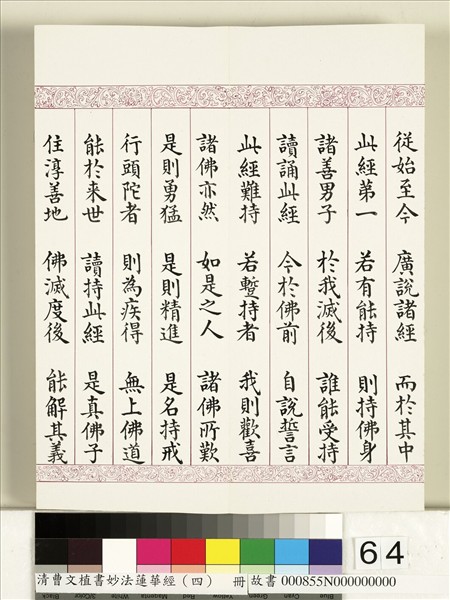 從始至今 廣說諸經 而於其中
此經第一 若有能持 則持佛身
諸善男子 於我滅後 誰能受持
讀誦此經 今於佛前 自說誓言
此經難持 若蹔持者 我則歡喜
諸佛亦然 如是之人 諸佛所歎
是則勇猛 是則精進 是名持戒
行頭陀者 則為疾得 無上佛道
能於来世 讀持此經 是真佛子
住淳善地 佛滅度後 能解其義
64
清曹文植書妙法蓮華經（四） 冊 故書 000855N000000000